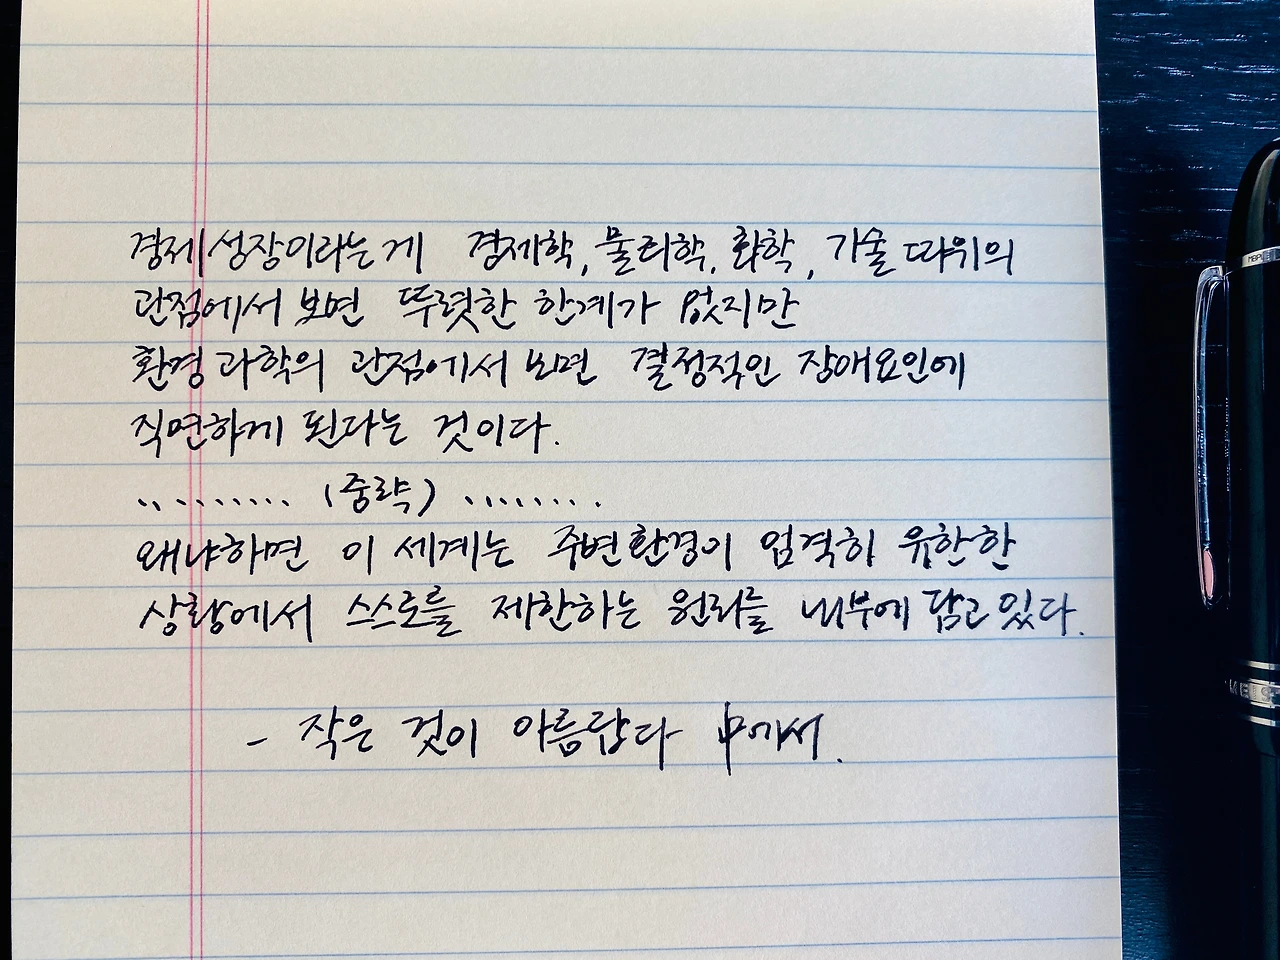 경제성장이라는게 경제학, 물리학, 화학, 기술 따위의
관점에서 보면 뚜렷한 한계가 없지만
환경과학의 관점에서 보면 결정적인 장애요인에
직면하게 된다는 것이다.
......... (중략) ........
왜냐하면 이 세계는 주변환경이 엄격히 유한한
상황에서 스스로를 제한하는 원리를 내부에 담고 있다.
- 작은 것이 아름답다 中에서.